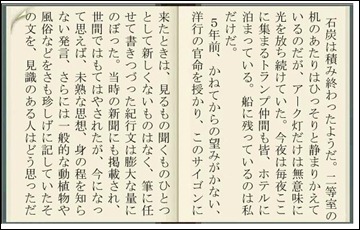 石炭は積み終わったようだ。二等室の
机のあたりはひっそりと静まりかえて
いるのだが、アーク灯だけは無意味に
光を放ち続けていた。今夜は毎夜ここ
に集まるトランプ仲間も皆、ホテルに
泊まっている。船に残っているのは私
だけだ。
５年前、かねてからの望みがかない、
洋行の官命を授かり、このサイゴンに
来たときは、見るもの聞くものひとつ
として新しくないものはなく、筆に任
せて書きつづった紀行文は膨大な量に
のぼった。当時の新聞にも掲載され、
世間ではもてはやされたが、今になっ
て思えば、未熟な思想、身の程を知ら
ない発言、さらには一般的な動植物や
風俗などをさも珍しげに記していたそ
の文を、見識のある人はどう思っただ